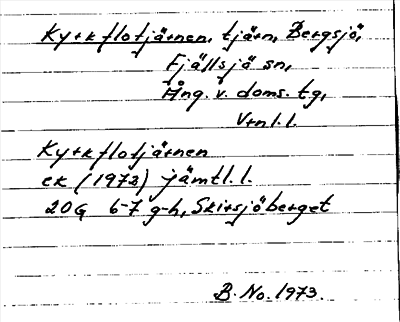 Kyrkflotjärnen, tjärn, Bergsjö,
Fjällsjö sn,
Ång. v. doms. tg,
Vrnl. l.
Kyrkflotjärnen
ek (1972) jämtl. l.
20G 6-7 g-h, Skirsjöberget
B. No. 1973.